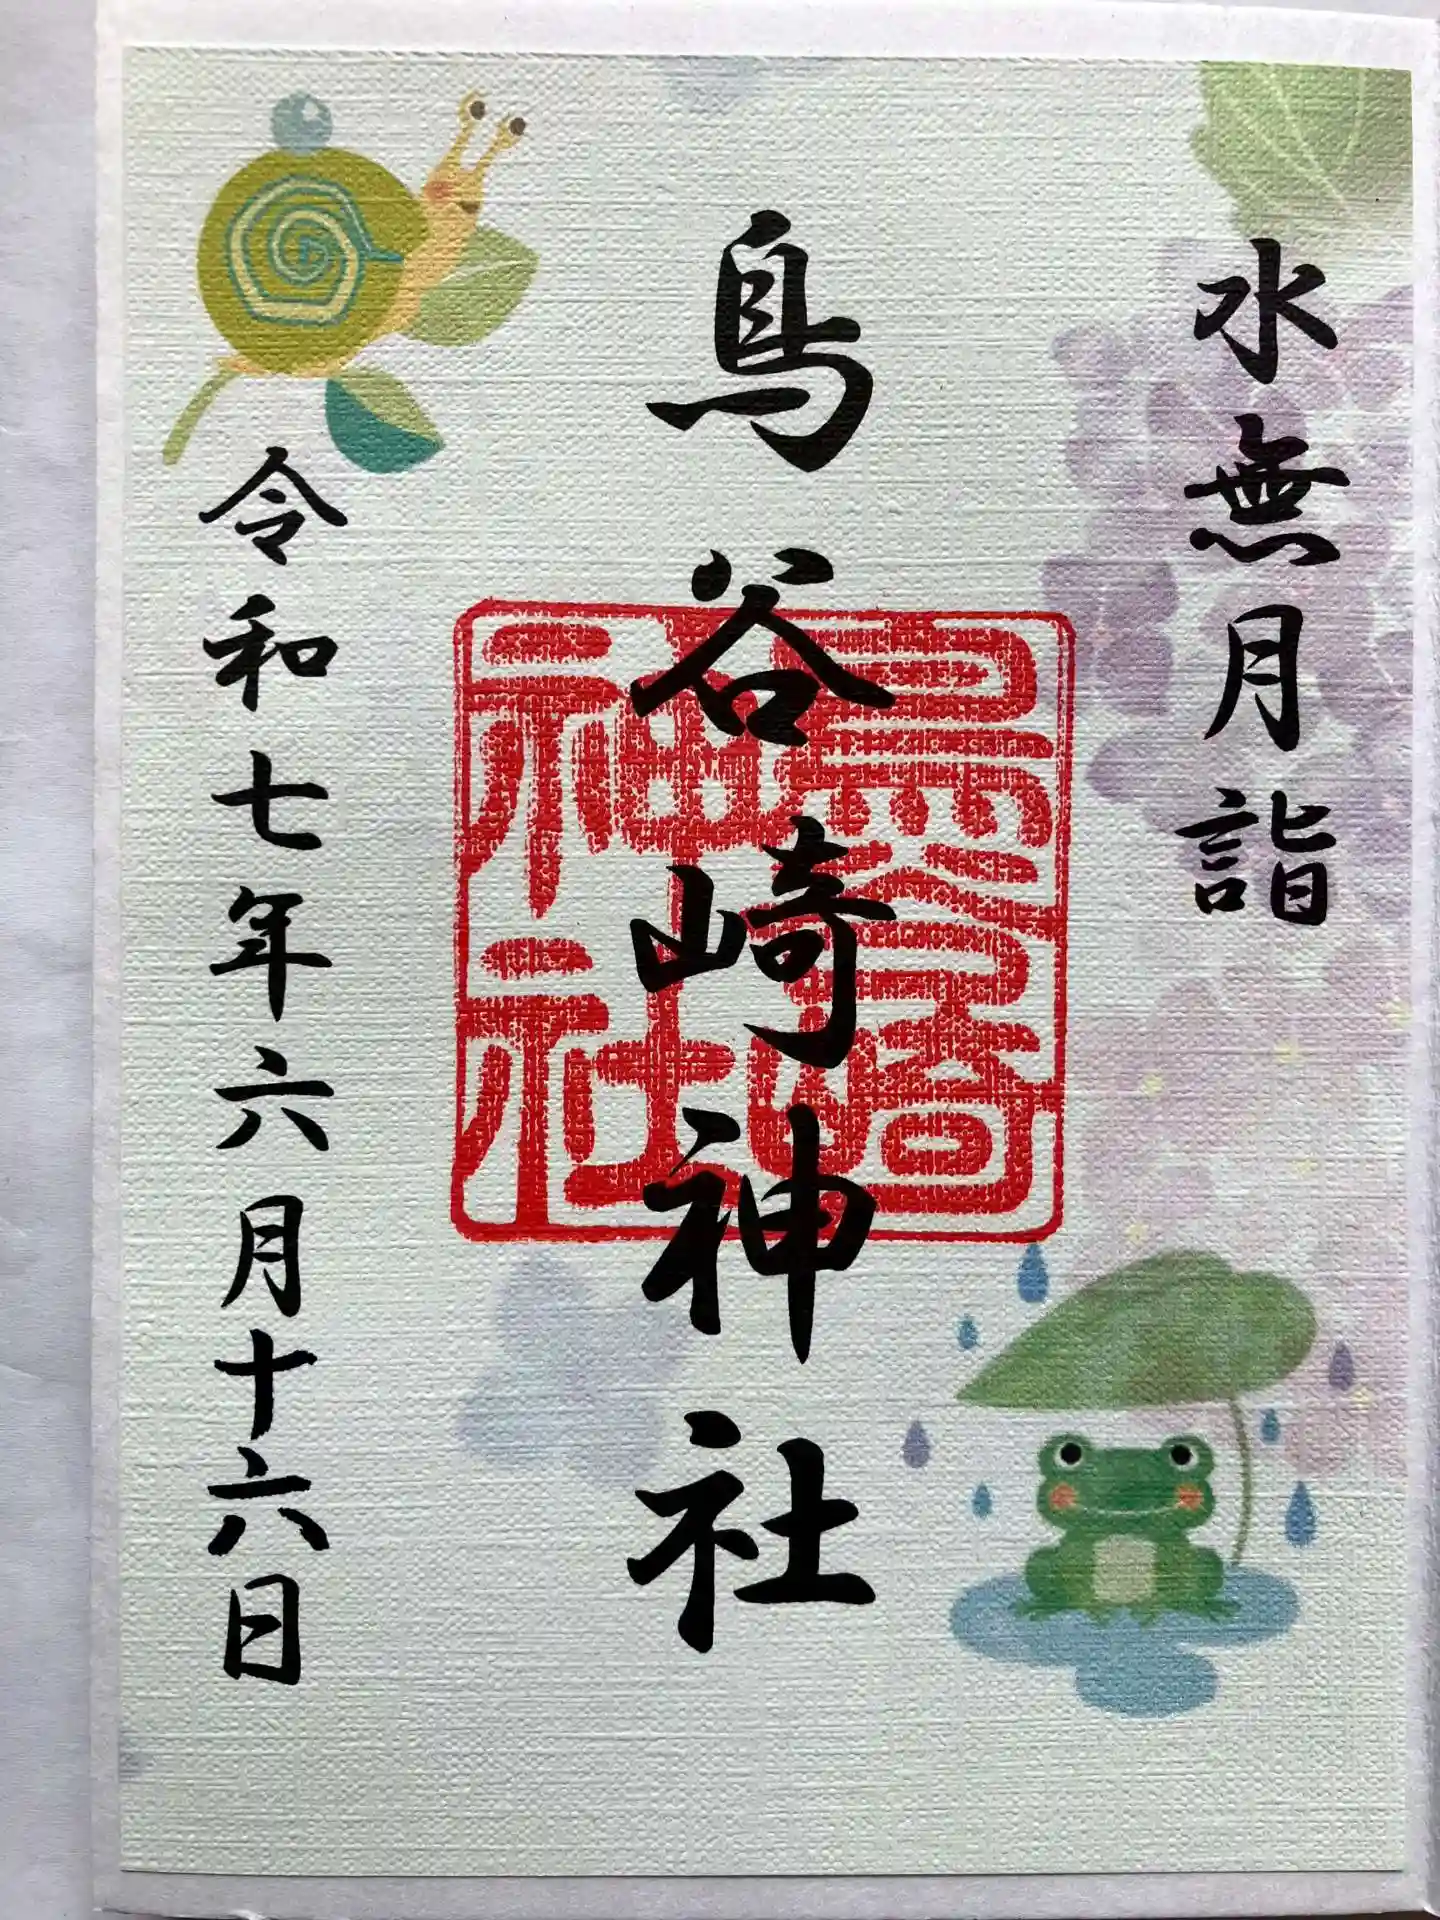 水無月詣
鳥谷崎神社
鳥谷崎
神社
令和七年六月十六日